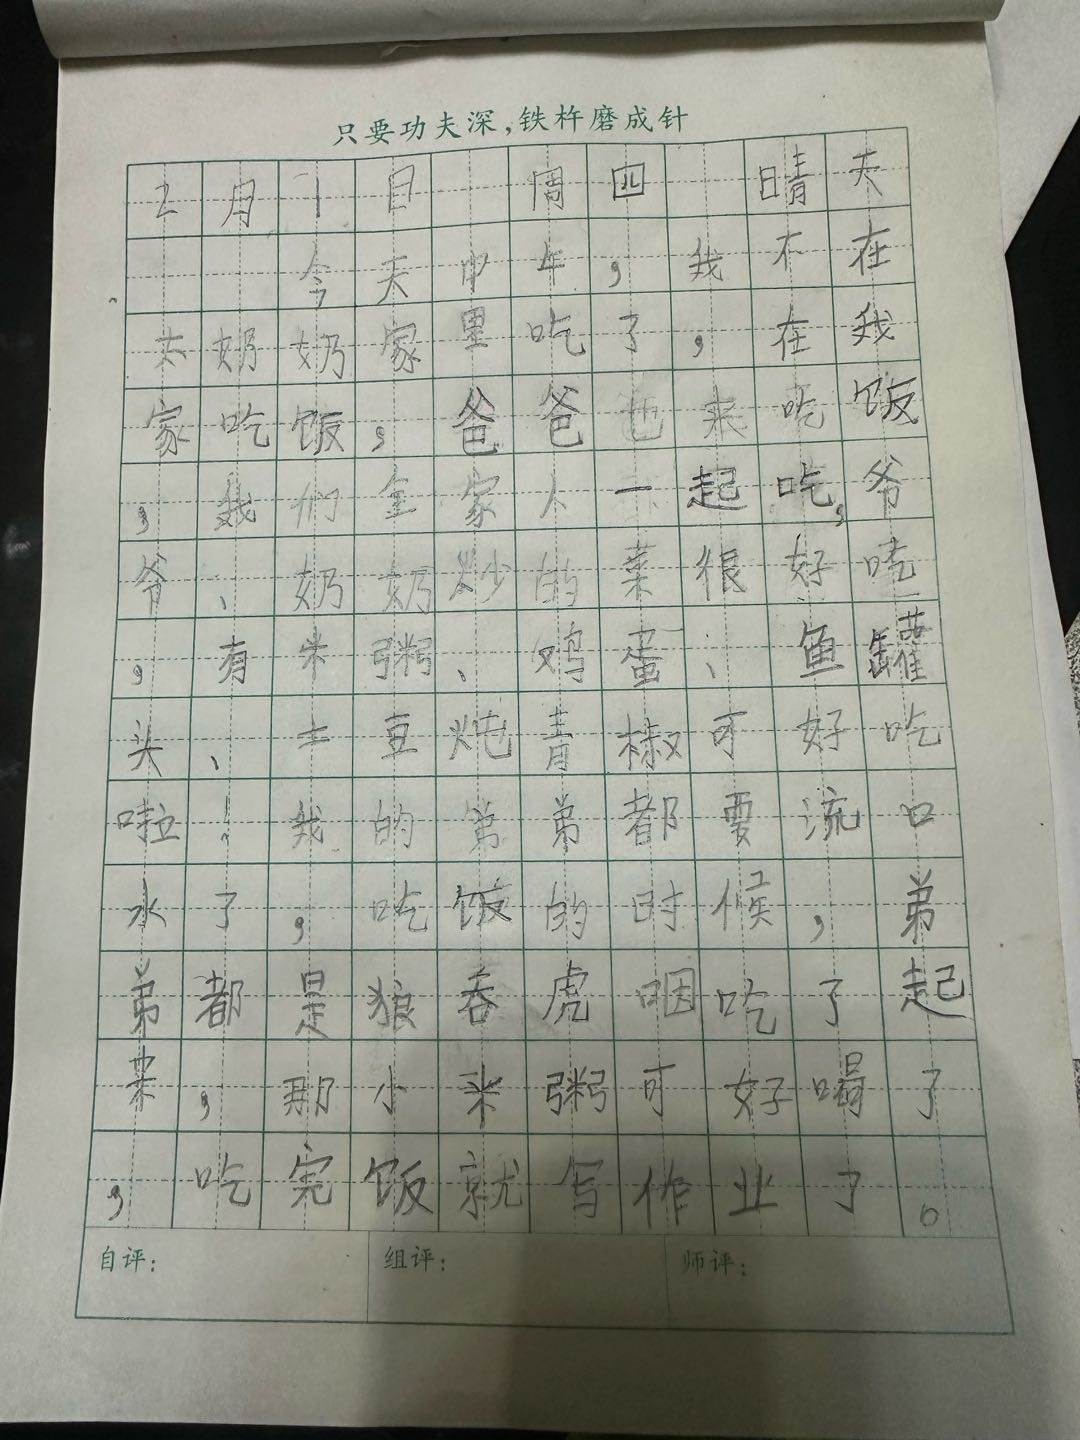 只要功夫深,铁杵磨成针
2月1日 周四 晴天
今天中午,我不在
太奶奶家里吃了,在我
家吃饭,爸爸也来吃饭
,我们全家人一起吃,爷
爷、奶奶炒的菜很好吃
,有米粥、鸡蛋、鱼罐
头、土豆炖青椒可好吃
啦!我的弟弟都要流口
水了,吃饭的时候,弟
弟都是狼吞虎咽吃了起
来,那小米粥可好喝了
,吃完饭就写作业了。
自评: 组评: 师评: